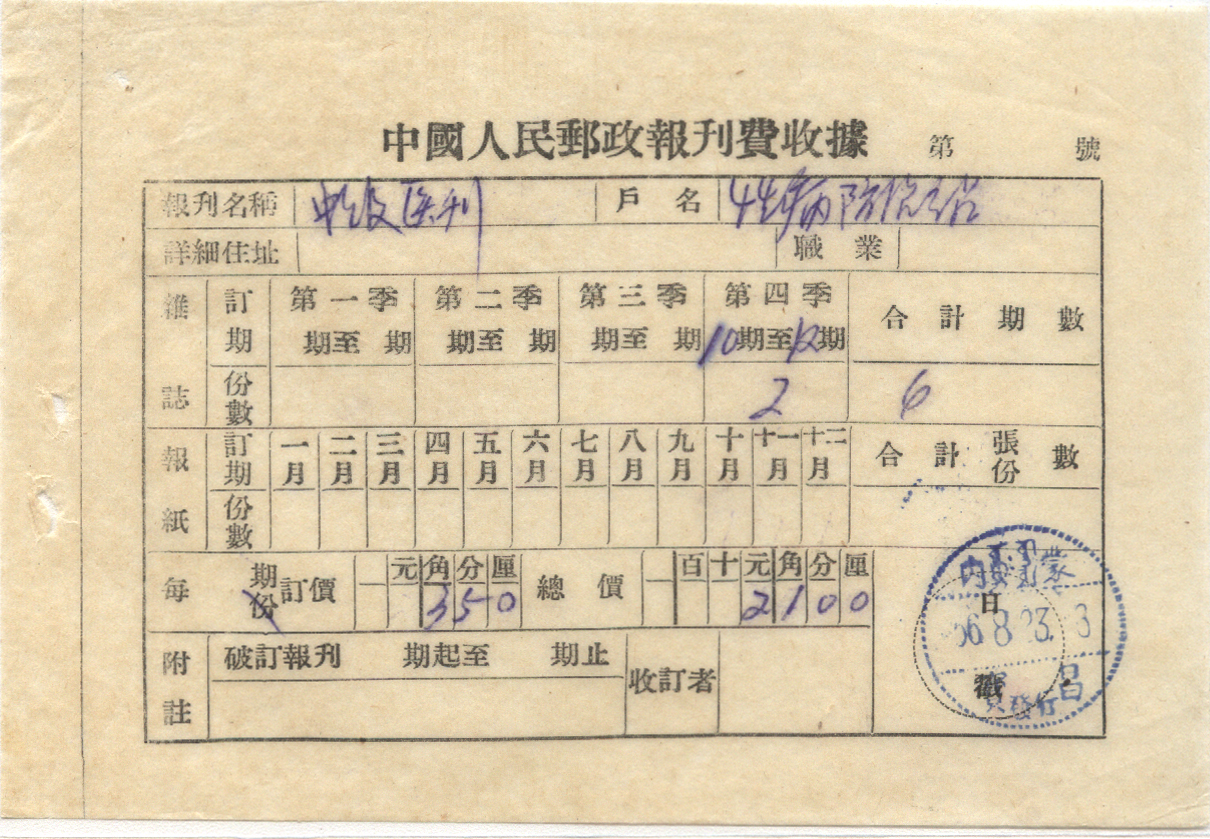 中國人民郵政報刊費收據 第 號
報刊名稱 中级医刊 戶名 性病防治站
詳細住址 職業
雜誌 訂期 第一季 第二季 第三季 第四季 合計期數
期至 期 期至 期 期至 期 10期至12期
份數 2 6
報紙 訂期 一月 二月 三月 四月 五月 六月 七月 八月 九月 十月 十一月 十二月 合計張份數
份數
每期份訂價 元角分厘 350 總價 百十元角分厘 2100
附註 破訂報刊 期起至 期止 收訂者
日戳
內蒙
56.8.23. 3
昌
發行